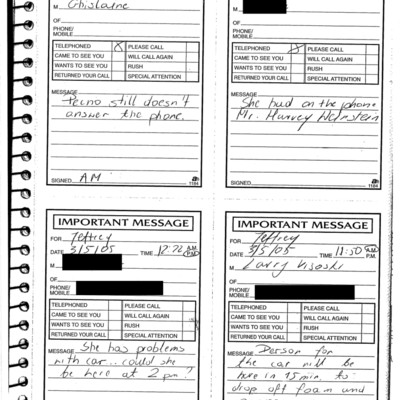 M Ghislaine
OF
PHONE/
MOBILE
TELEPHONED X PLEASE CALL
CAME TO SEE YOU WILL CALL AGAIN
WANTS TO SEE YOU RUSH
RETURNED YOUR CALL SPECIAL ATTENTION
MESSAGE
still doesn't
answer the phone.
SIGNED AM
1184
M
OF
PHONE/
MOBILE
TELEPHONED X PLEASE CALL
CAME TO SEE YOU WILL CALL AGAIN
WANTS TO SEE YOU RUSH
RETURNED YOUR CALL SPECIAL ATTENTION
MESSAGE
She had on the phone
Mr. Harvey Weinstein
SIGNED
1184
IMPORTANT MESSAGE
FOR Jeffrey
DATE 3/5/05 TIME A.M. P.M.
M
OF
PHONE/
MOBILE
TELEPHONED PLEASE CALL
CAME TO SEE YOU WILL CALL AGAIN
WANTS TO SEE YOU RUSH
RETURNED YOUR CALL SPECIAL ATTENTION
MESSAGE She has problems
with car... could she
be here at 2 pm?
IMPORTANT MESSAGE
FOR Jeffrey
DATE 3/5/05 TIME 11:50 A.M. P.M.
M Larry Visoski
OF
PHONE/
MOBILE
TELEPHONED PLEASE CALL
CAME TO SEE YOU WILL CALL AGAIN
WANTS TO SEE YOU RUSH
RETURNED YOUR CALL SPECIAL ATTENTION
MESSAGE Person for
the car will be
here in 15 min. to
drop off foam and